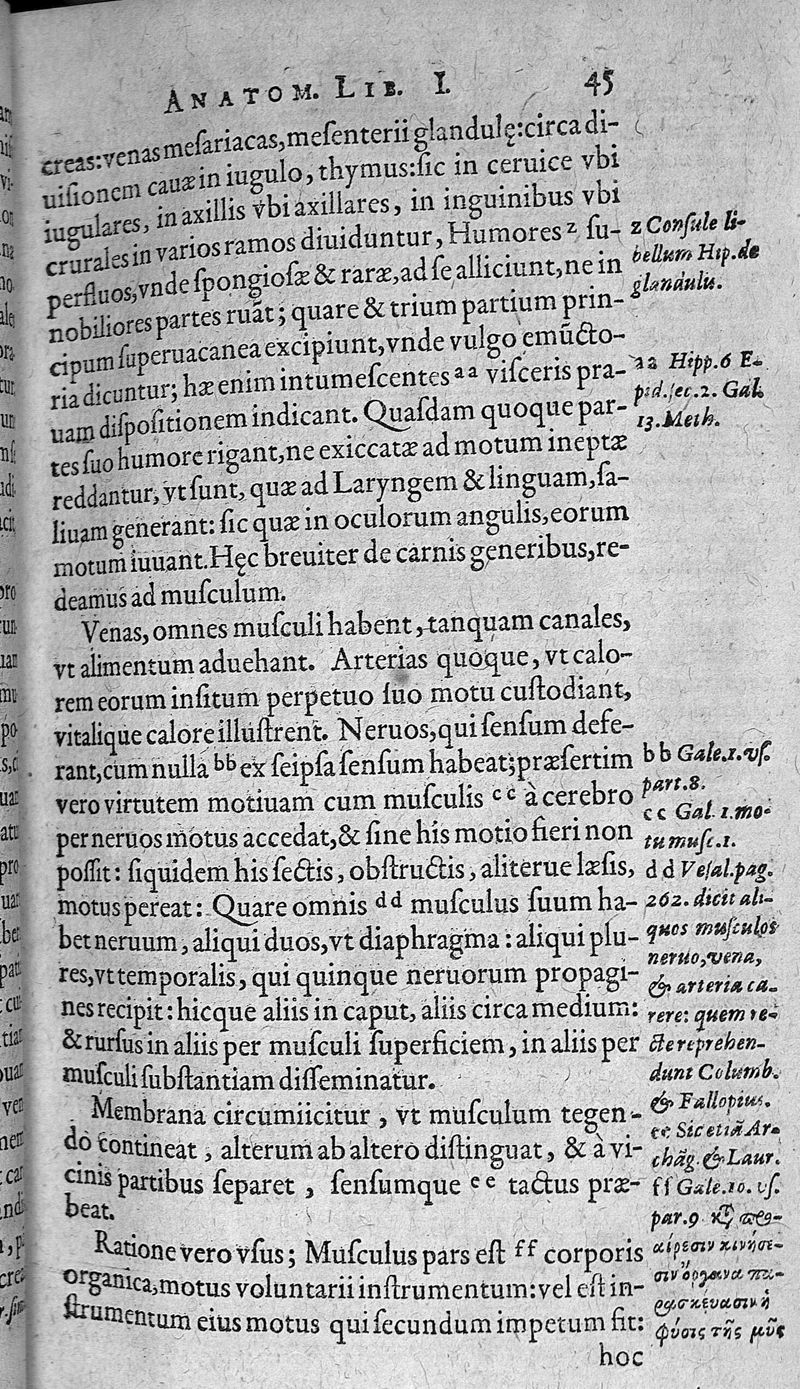 ANATOM. LIB. I. 45
creas: venas mesariacas, mesenterii glandulę: circa di-
uisionem cauæ in iugulo, thymus: sic in ceruice vbi
iugulares, in axillis vbi axillares, in inguinibus vbi
crurales in varios ramos diuiduntur, Humores ᶻ su-
perfluos, vnde spongiosæ & raræ, ad se alliciunt, ne in
nobiliores partes ruãt; quare & trium partium prin-
cipum superuacanea excipiunt, vnde vulgo emũcto-
ria dicuntur; hæ enim intumescentes ᵃᵃ visceris pra-
uam dispositionem indicant. Quasdam quoque par-
tes suo humore rigant, ne exiccatæ ad motum ineptæ
reddantur, vt sunt, quæ ad Laryngem & linguam, sa-
liuam generant: sic quæ in oculorum angulis, eorum
motum iuuant. Hęc breuiter de carnis generibus, re-
deamus ad musculum.
Venas, omnes musculi habent, tanquam canales,
vt alimentum aduehant. Arterias quoque, vt calo-
rem eorum insitum perpetuo suo motu custodiant,
vitalique calore illustrent. Neruos, qui sensum defe-
rant, cum nulla ᵇᵇ ex seipsa sensum habeat; præsertim
vero virtutem motiuam cum musculis ᶜᶜ à cerebro
per neruos motus accedat, & sine his motio fieri non
possit: siquidem his sectis, obstructis, aliterue læsis,
motus pereat: Quare omnis ᵈᵈ musculus suum ha-
bet neruum, aliqui duos, vt diaphragma: aliqui plu-
res, vt temporalis, qui quinque neruorum propagi-
nes recipit: hicque aliis in caput, aliis circa medium:
& rursus in aliis per musculi superficiem, in aliis per
musculi substantiam disseminatur.
Membrana circumiicitur, vt musculum tegen-
do contineat, alterum ab altero distinguat, & à vi-
cinis partibus separet, sensumque ᵉᵉ tactus præ-
beat.
Ratione vero vsus; Musculus pars est ᶠᶠ corporis
organica, motus voluntarii instrumentum: vel est in-
strumentum eius motus qui secundum impetum fit:
hoc
z Consule li-
bellum Hip. de
glandulis.
aa Hipp. 6 E-
pid. sec. 2. Gal.
13. Meth.
bb Gale. 1. vs.
part. 8.
cc Gal. 1. mo-
tu musc. 1.
dd Vesal. pag.
262. dicit ali-
quos musculos
neruo, vena,
& arteria ca-
rere: quem re-
cte reprehen-
dunt Columb.
& Fallopius.
ee Sic etiã Ar-
chãg. & Laur.
ff Gale. 10. vs.
par. 9 κỳ προ-
αίρεσιν κινήσε-
σιν ὄργανα πα-
ρασκεύασιν ἡ
φύσις τῆς μῦς